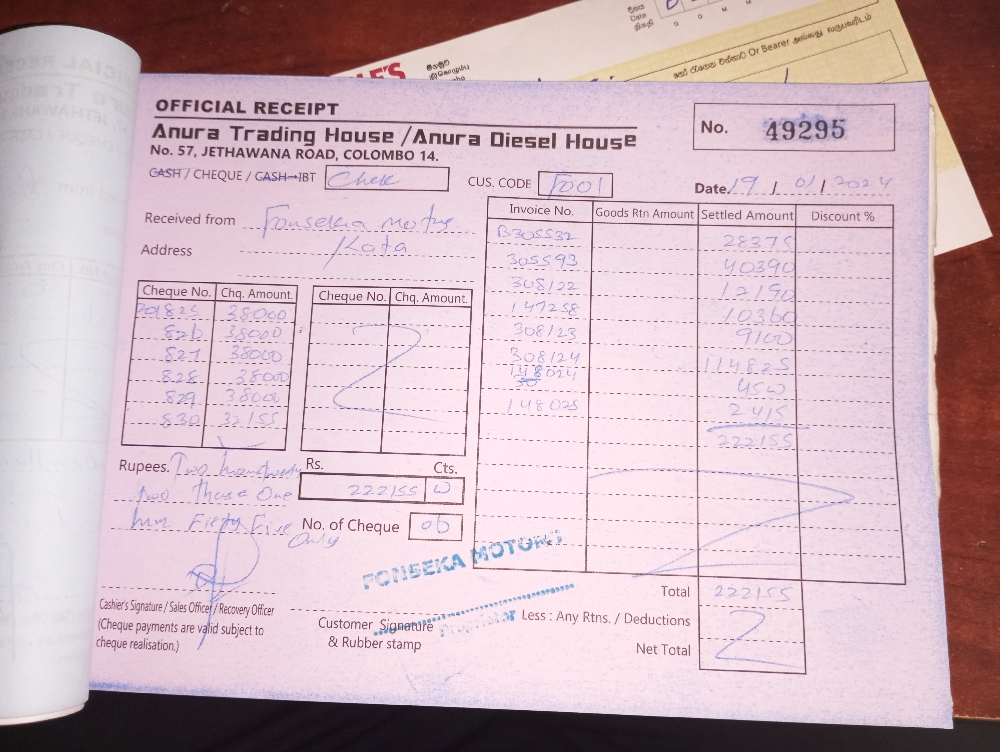 OFFICIAL RECEIPT
Anura Trading House /Anura Diesel House
No. 57, JETHAWANA ROAD, COLOMBO 14.
No. 49295
CASH / CHEQUE / CASH→IBT Chek
CUS. CODE F001
Date. 19 / 01 / 2024
Received from Fonseka Motors
Address /Kata
Invoice No. Goods Rtn Amount Settled Amount Discount %
B305532 28375
305593 40390
308122 12190
147258 10360
308123 9100
308124 114825
148024 4500
148025 2415
222155
Cheque No. Chq. Amount. Cheque No. Chq. Amount.
701825 38000
826 38000
827 38000
828 38000
829 38000
830 32155
Rupees. Two twenty
two One
Fifty Five
Only
Rs. Cts.
222155
No. of Cheque 06
FONSEKA MOTORS
Proprietor
Total 222155
Less : Any Rtns. / Deductions
Net Total
Cashier's Signature / Sales Officer / Recovery Officer
(Cheque payments are valid subject to
cheque realisation.)
Customer Signature
& Rubber stamp
Or Bearer
Date
D D M M